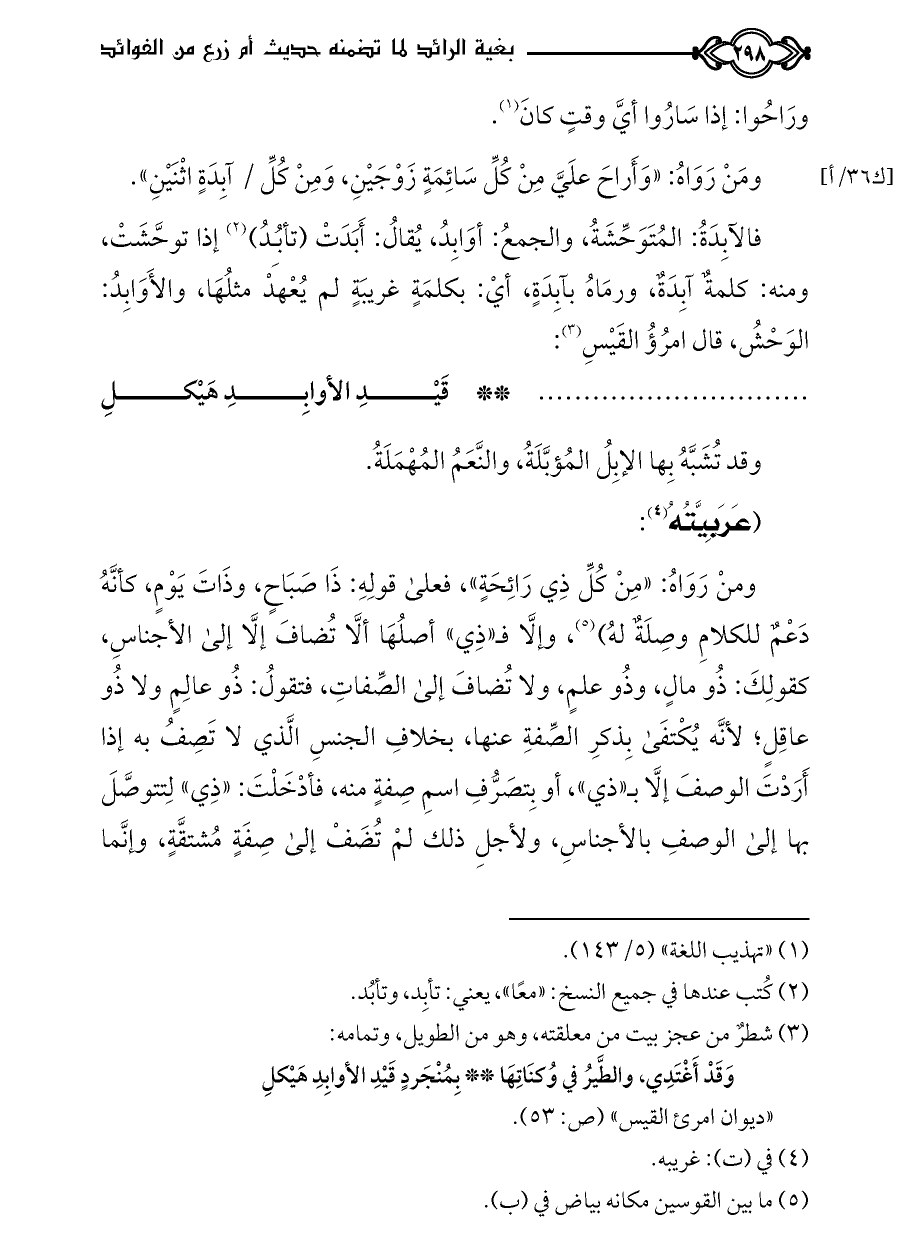 ٢٩٨ بغية الرائد لما تضمنه حديث أم زرع من الفوائد
ورَاحُوا: إذا سَارُوا أيَّ وقتٍ كانَ(١).
[ك٣٦/ أ] ومَنْ رَوَاهُ: «وَأَراحَ علَيَّ مِنْ كُلِّ سَائِمَةٍ زَوْجَيْنِ، وَمِنْ كُلِّ / آبِدَةٍ اثْنَيْنِ».
فالآبِدَةُ: المُتَوَحِّشَةُ، والجمعُ: أوَابِدُ، يُقالُ: أَبَدَتْ (تأبُِدُ)(٢) إذا توحَّشَتْ،
ومنه: كلمةٌ آبِدَةٌ، ورمَاهُ بآبِدَةٍ، أيْ: بكلمَةٍ غريبَةٍ لم يُعْهدْ مثلُهَا، والأَوَابِدُ:
الوَحْشُ، قال امرُؤُ القَيْسِ(٣):
.............................. ** قَيْـــــدِ الأوابِـــــدِ هَيْكـــــلِ
وقد تُشَبَّهُ بِها الإبِلُ المُؤبَّلَةُ، والنَّعَمُ المُهْمَلَةُ.
(عَرَبِيَّتُهُ(٤):
ومنْ رَوَاهُ: «مِنْ كُلِّ ذِي رَائِحَةٍ»، فعلىٰ قولِهِ: ذَا صَبَاحٍ، وذَاتَ يَوْمٍ، كأنَّهُ
دَعْمٌ للكلامِ وصِلَةٌ لهُ)(٥)، وإلَّا فـ«ذِي» أصلُهَا ألَّا تُضافَ إلَّا إلىٰ الأجناسِ،
كقولِكَ: ذُو مالٍ، وذُو علمٍ، ولا تُضافَ إلىٰ الصِّفاتِ، فتقولُ: ذُو عالِمٍ ولا ذُو
عاقِلٍ؛ لأنَّه يُكْتفَىٰ بِذكرِ الصِّفةِ عنها، بخلافِ الجنسِ الَّذي لا تَصِفُ به إذا
أَرَدْتَ الوصفَ إلَّا بـ«ذي»، أو بِتصَرُّفِ اسمِ صِفةٍ منه، فأدْخَلْتَ: «ذِي» لِتتوصَّلَ
بها إلىٰ الوصفِ بالأجناسِ، ولأجلِ ذلك لمْ تُضَفْ إلىٰ صِفَةٍ مُشتقَّةٍ، وإنَّما
(١) «تهذيب اللغة» (٥/ ١٤٣).
(٢) كُتب عندها في جميع النسخ: «معًا»، يعني: تأبِد، وتأبُد.
(٣) شطرٌ من عجز بيت من معلقته، وهو من الطويل، وتمامه:
وَقَدْ أَغْتَدِي، والطَّيرُ في وُكنَاتِهَا ** بِمُنْجَردٍ قَيْدِ الأوابِدِ هَيْكلِ
«ديوان امرئ القيس» (ص: ٥٣).
(٤) في (ت): غريبه.
(٥) ما بين القوسين مكانه بياض في (ب).